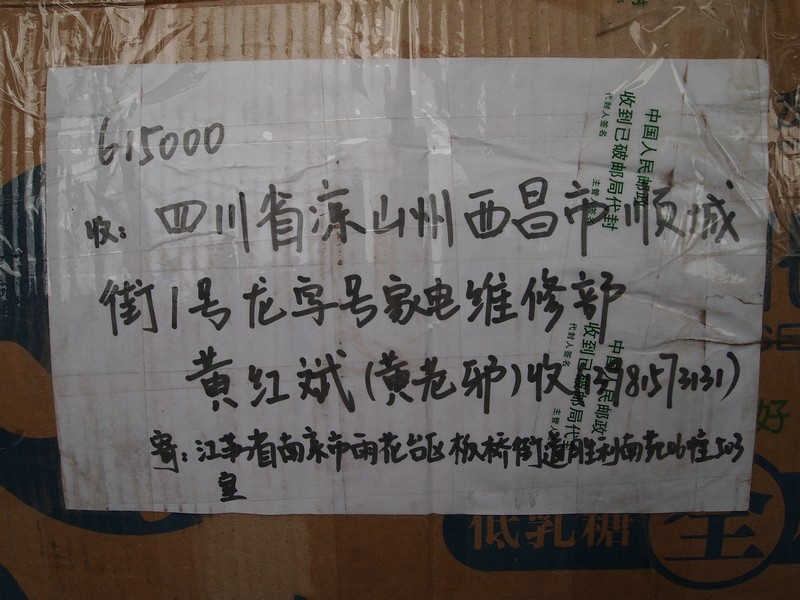 615000
收：四川省凉山州西昌市顺城
街1号龙字号家电维修部
黄红斌(黄老邪)收(13981573131)
寄：江苏省南京市雨花台区板桥街道胜利南苑06幢503
室
中国人民邮政
收到已破邮局代封
代封人签名 主管人签名
中国人民邮政
收到已破邮局代封
代封人签名 主管人
低乳糖
全
好